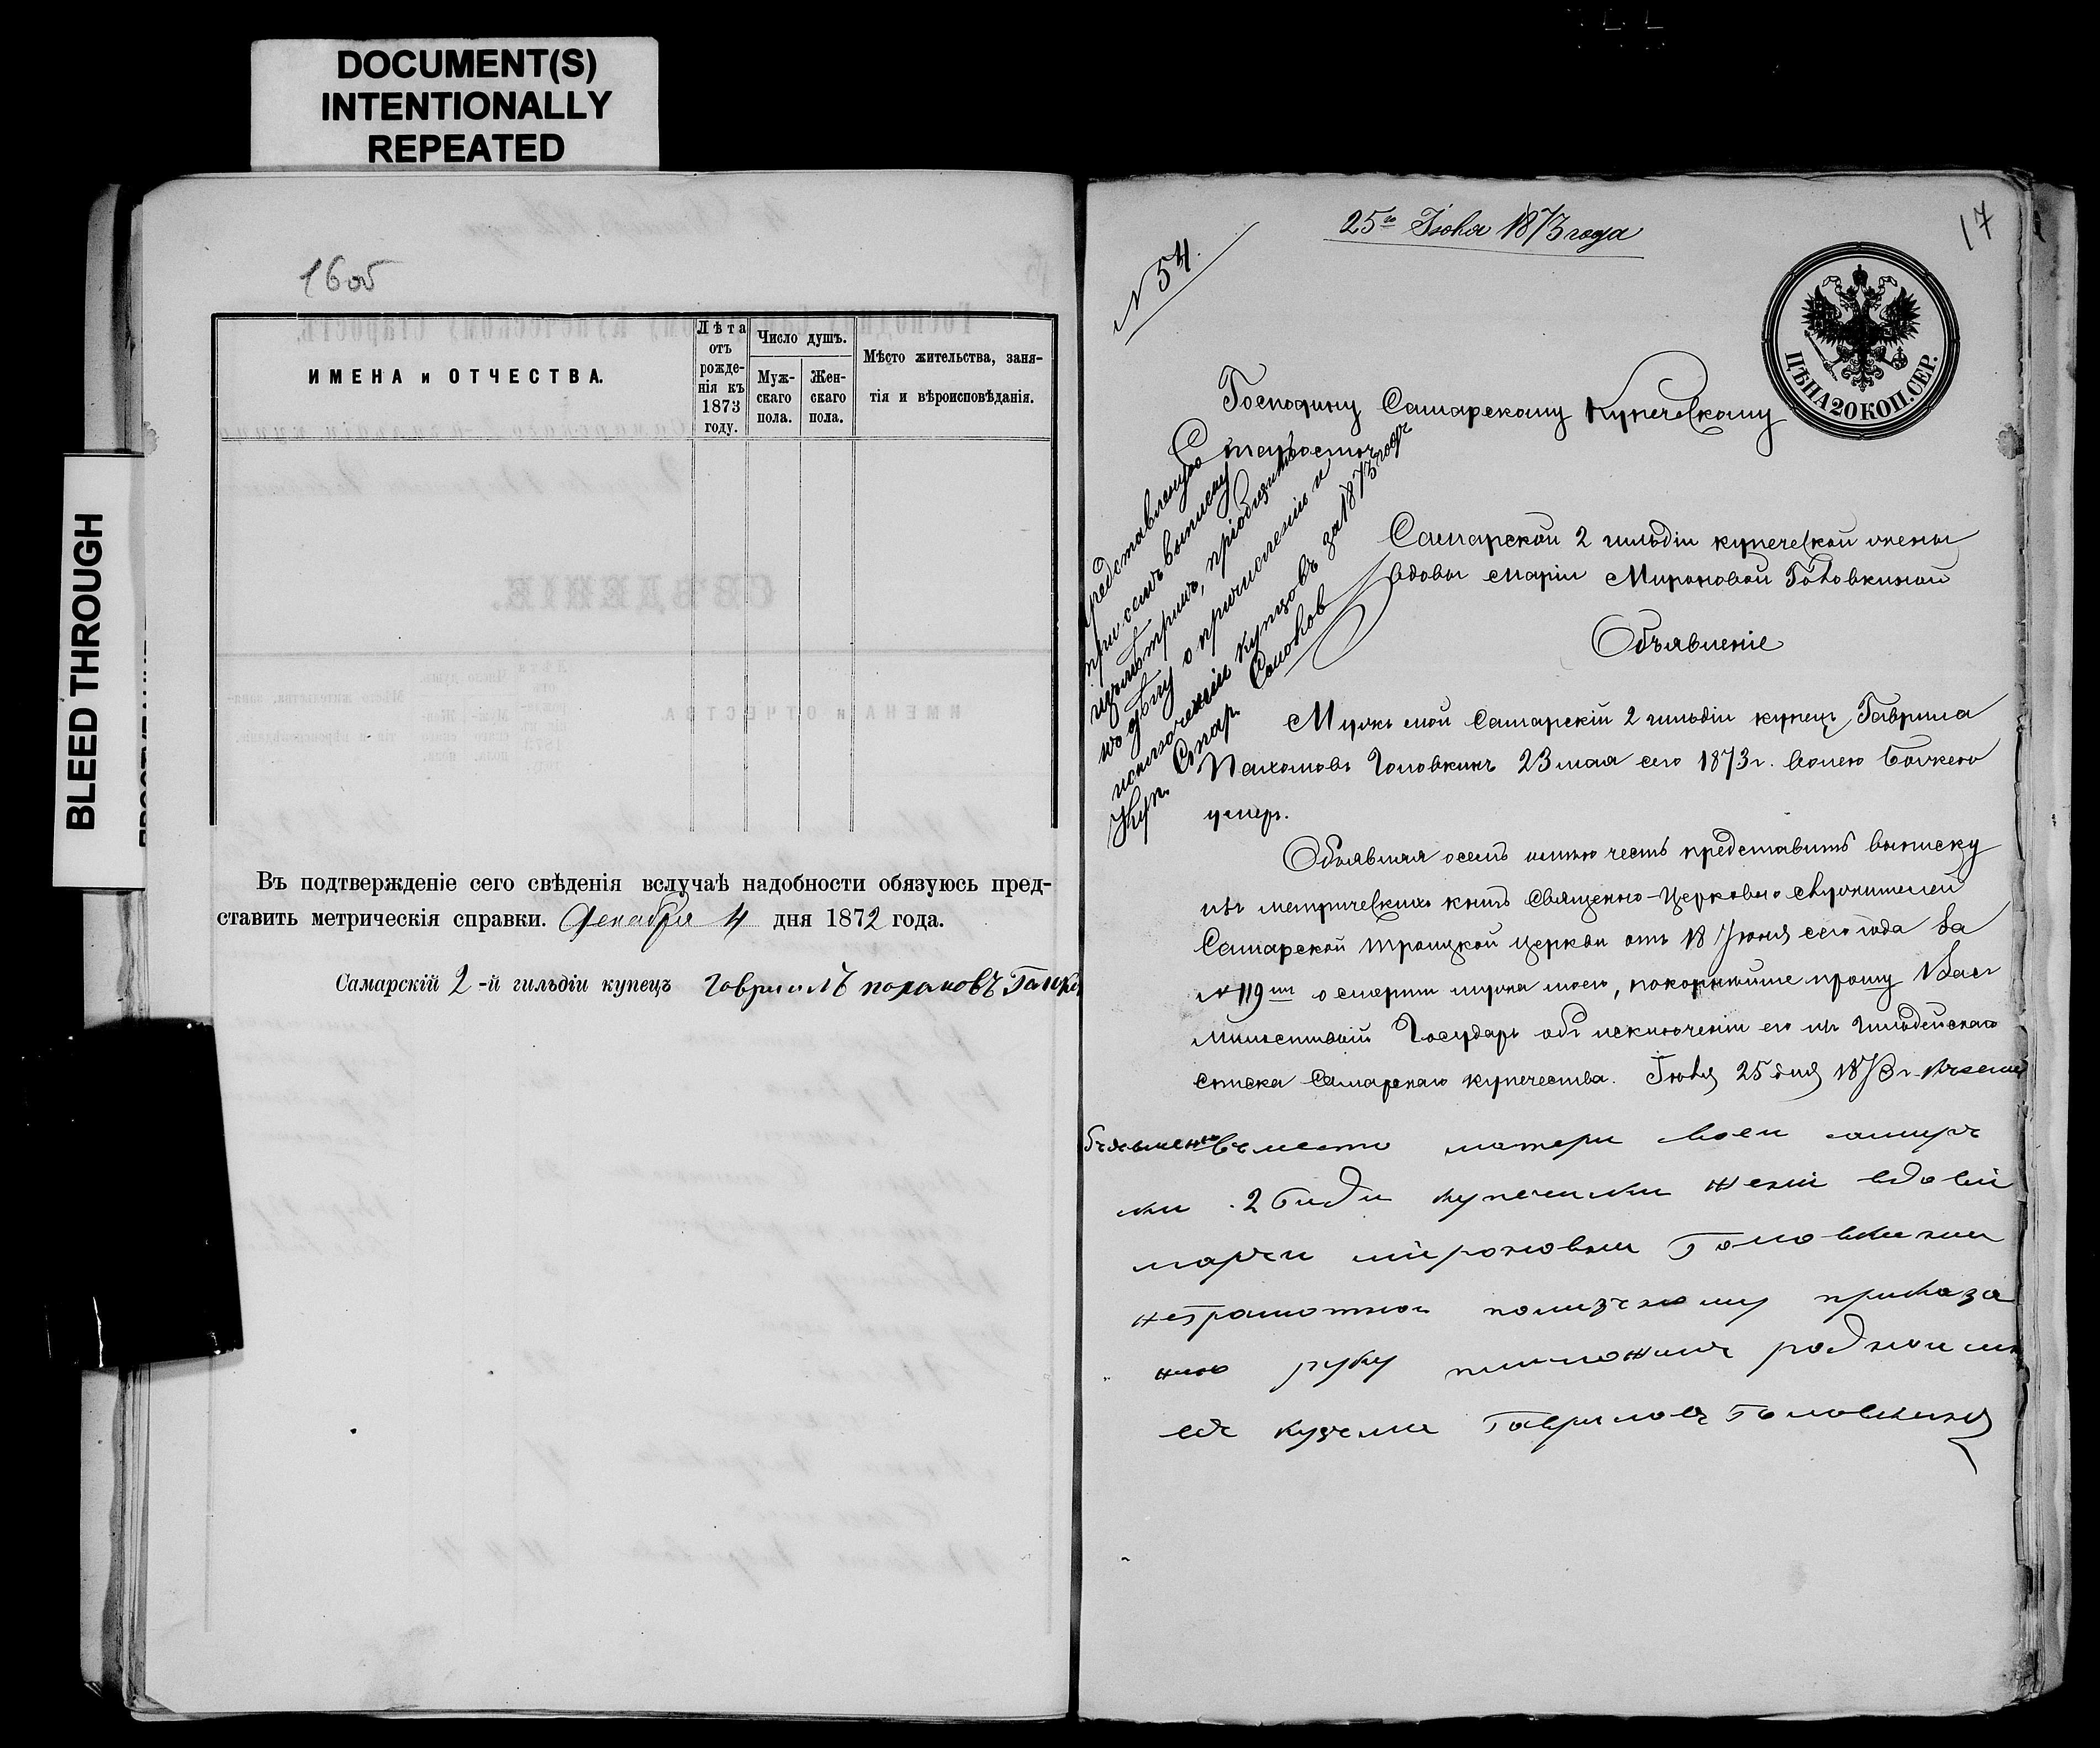 DOCUMENT(S)
INTENTIONALLY
REPEATED
BLEED THROUGH
16об
ИМЕНА и ОТЧЕСТВА.
Лѣта
отъ
рожде-
нія къ
1873
году.
Число душъ.
Муж-
скаго
пола.
Жен-
скаго
пола.
Мѣсто жительства, заня-
тія и вѣроисповѣданія.
Въ подтвержденіе сего свѣденія вслучаѣ надобности обязуюсь пред-
ставить метрическія справки. Декабря 4 дня 1872 года.
Самарскій 2-й гильдіи купецъ
25го Іюня 1873 года
17
N 54.
ЦѢНА 20 КОП. СЕР.
Господину Самарскому Купеческому
Старостѣ
Представленную
при семъ выписку
изъ метрикъ, пріобщить
къ дѣлу о причисленіи и
исключеніи купцовъ за 1873 годъ
Куп. Стар.
Самарской 2 гильдіи купеческой жены
вдовы Маріи Мироновой Головкиной
Объявленіе
Мужъ мой Самарскій 2 гильдіи купецъ Гаврила
Пахомовъ Головкинъ 23 мая сего 1873 г. волею Божьею
умеръ.
Объявляя осемъ имѣю честь представить выписку
изъ метрическихъ книгъ Священно-Церковно служителей
Самарской Троицкой церкви отъ 18 Іюня сего года за
N 119 о смерти мужа моего, покорнѣйше прошу Васъ
Милостивый Государь объ исключеніи его изъ гильдейскаго
списка Самарскаго купечества. Іюня 25 дня 1873 г. Къ сему
вместо матери воеи самарс
ки 2 гилди купечиски жены вдовы
марьи мироновни Головкинии
неграмотнои поличному приказа
нию руку приложилъ роднои сын
ее кузьма Гавриловъ Головкинъ